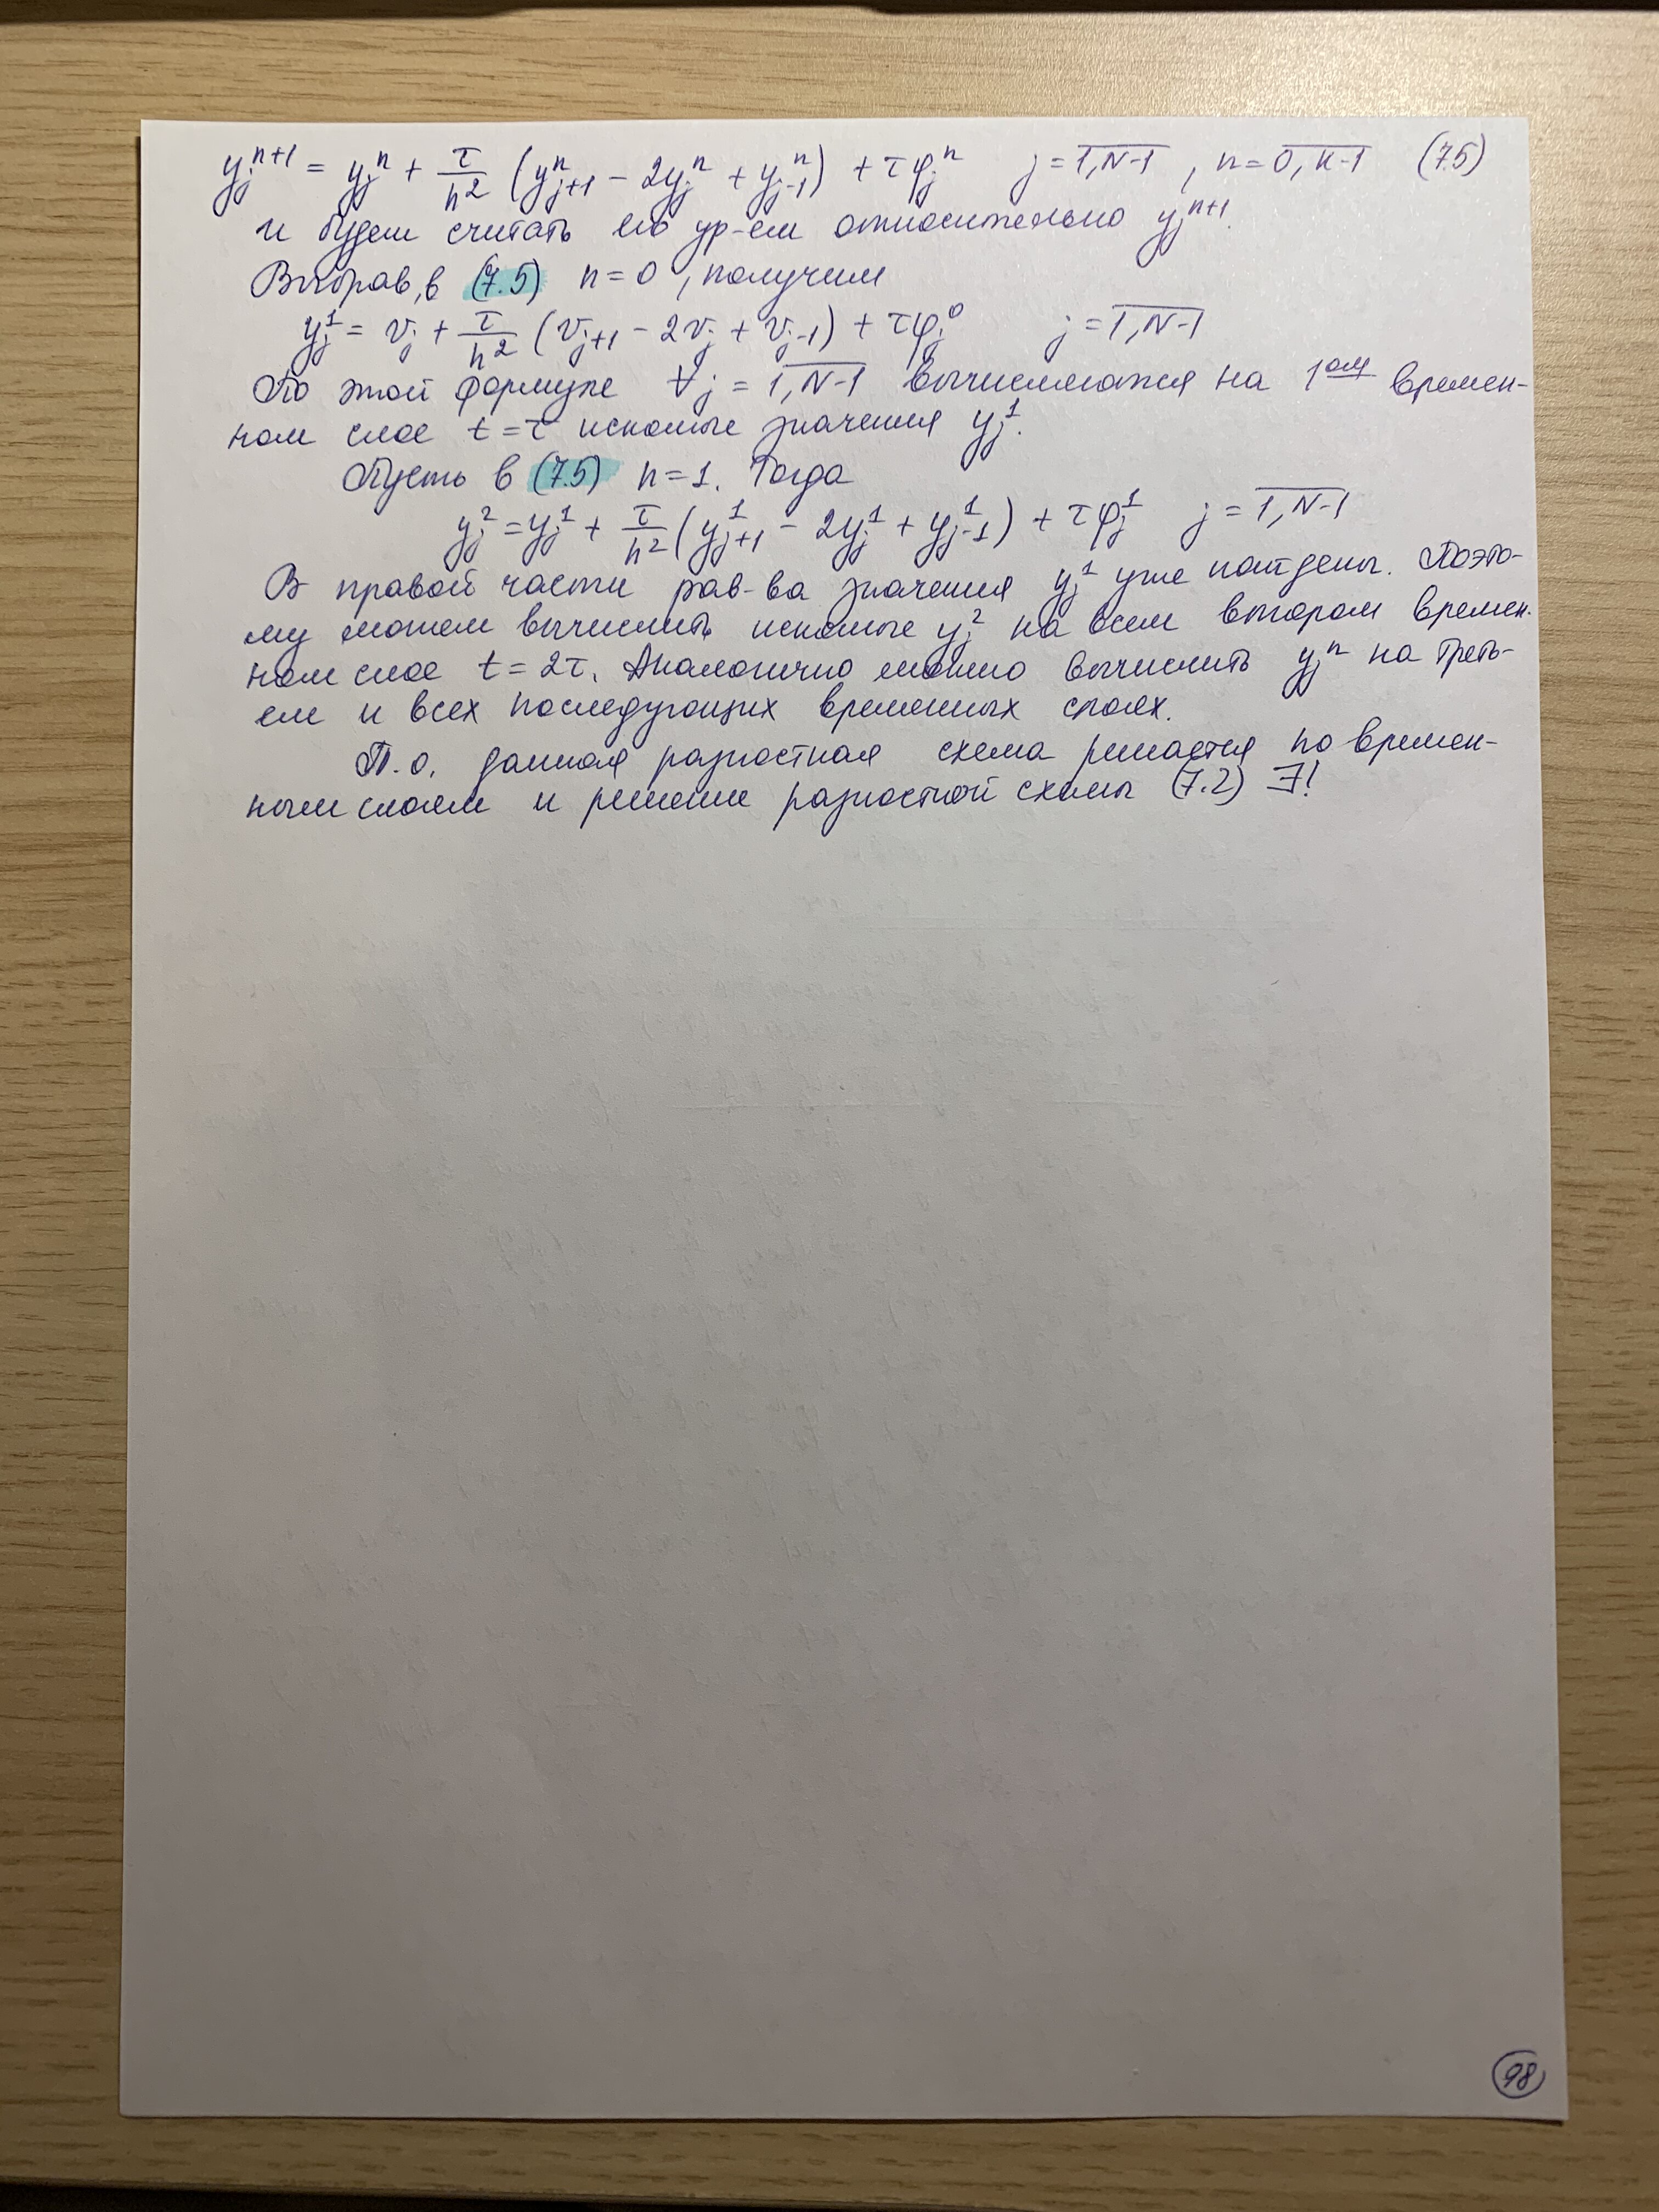 y_j^{n+1} = y_j^n + τ/h² (y_{j+1}^n − 2y_j^n + y_{j−1}^n) + τφ_j^n j = 1,N−1 , n = 0,K−1 (7.5)
и будем считать его ур-ем относительно y_j^{n+1}.
Выбрав, в (7.5) n = 0, получим
y_j^1 = v_j + τ/h² (v_{j+1} − 2v_j + v_{j−1}) + τφ_j^0 j = 1,N−1
По этой формуле ∀j = 1,N−1 вычисляются на 1ом времен-
ном слое t = τ искомые значения y_j^1.
Пусть в (7.5) n = 1. Тогда
y_j^2 = y_j^1 + τ/h² (y_{j+1}^1 − 2y_j^1 + y_{j−1}^1) + τφ_j^1 j = 1,N−1
В правой части рав-ва значения y_j^1 уже найдены. Поэто-
му можем вычислить искомые y_j^2 на всем втором времен-
ном слое t = 2τ. Аналогично можно вычислить y_j^n на треть-
ем и всех последующих временных слоях.
Т.о. данная разностная схема решается по времен-
ным слоям и решение разностной схемы (7.2) ∃!
98